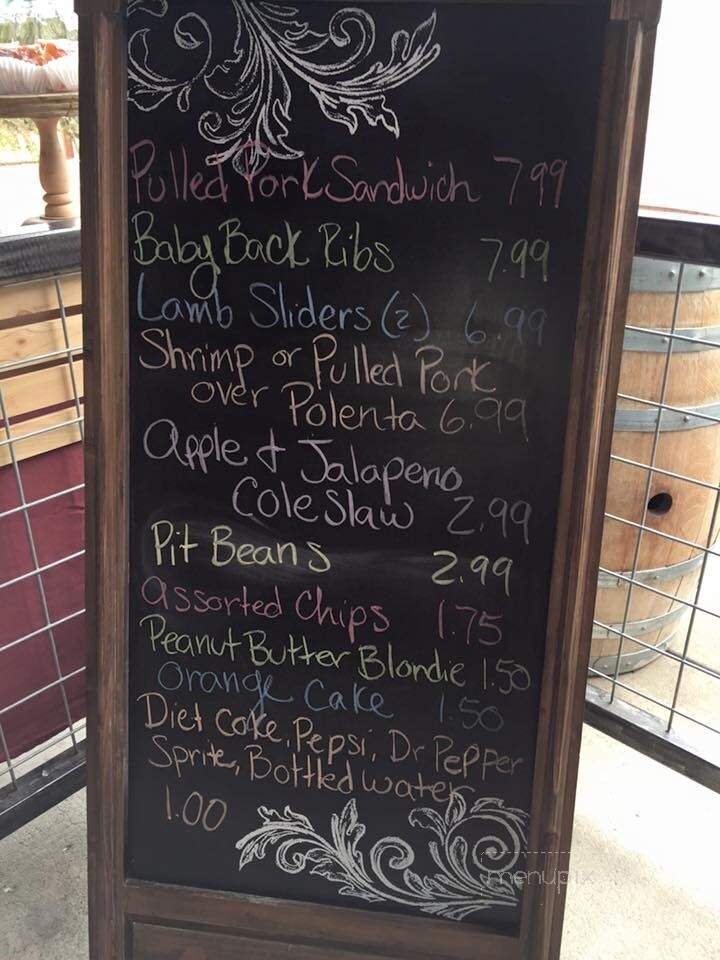 Pulled Pork Sandwich 7.99
Baby Back Ribs 7.99
Lamb Sliders (2) 6.99
Shrimp or Pulled Pork
over Polenta 6.99
Apple & Jalapeno
Coleslaw 2.99
Pit Beans 2.99
Assorted Chips 1.75
Peanut Butter Blondie 1.50
Orange Cake 1.50
Diet Coke, Pepsi, Dr Pepper
Sprite, Bottled water
1.00
menupix